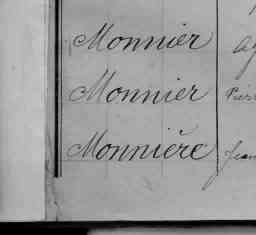 Monnier
Monnier Pier
Monnière Jean